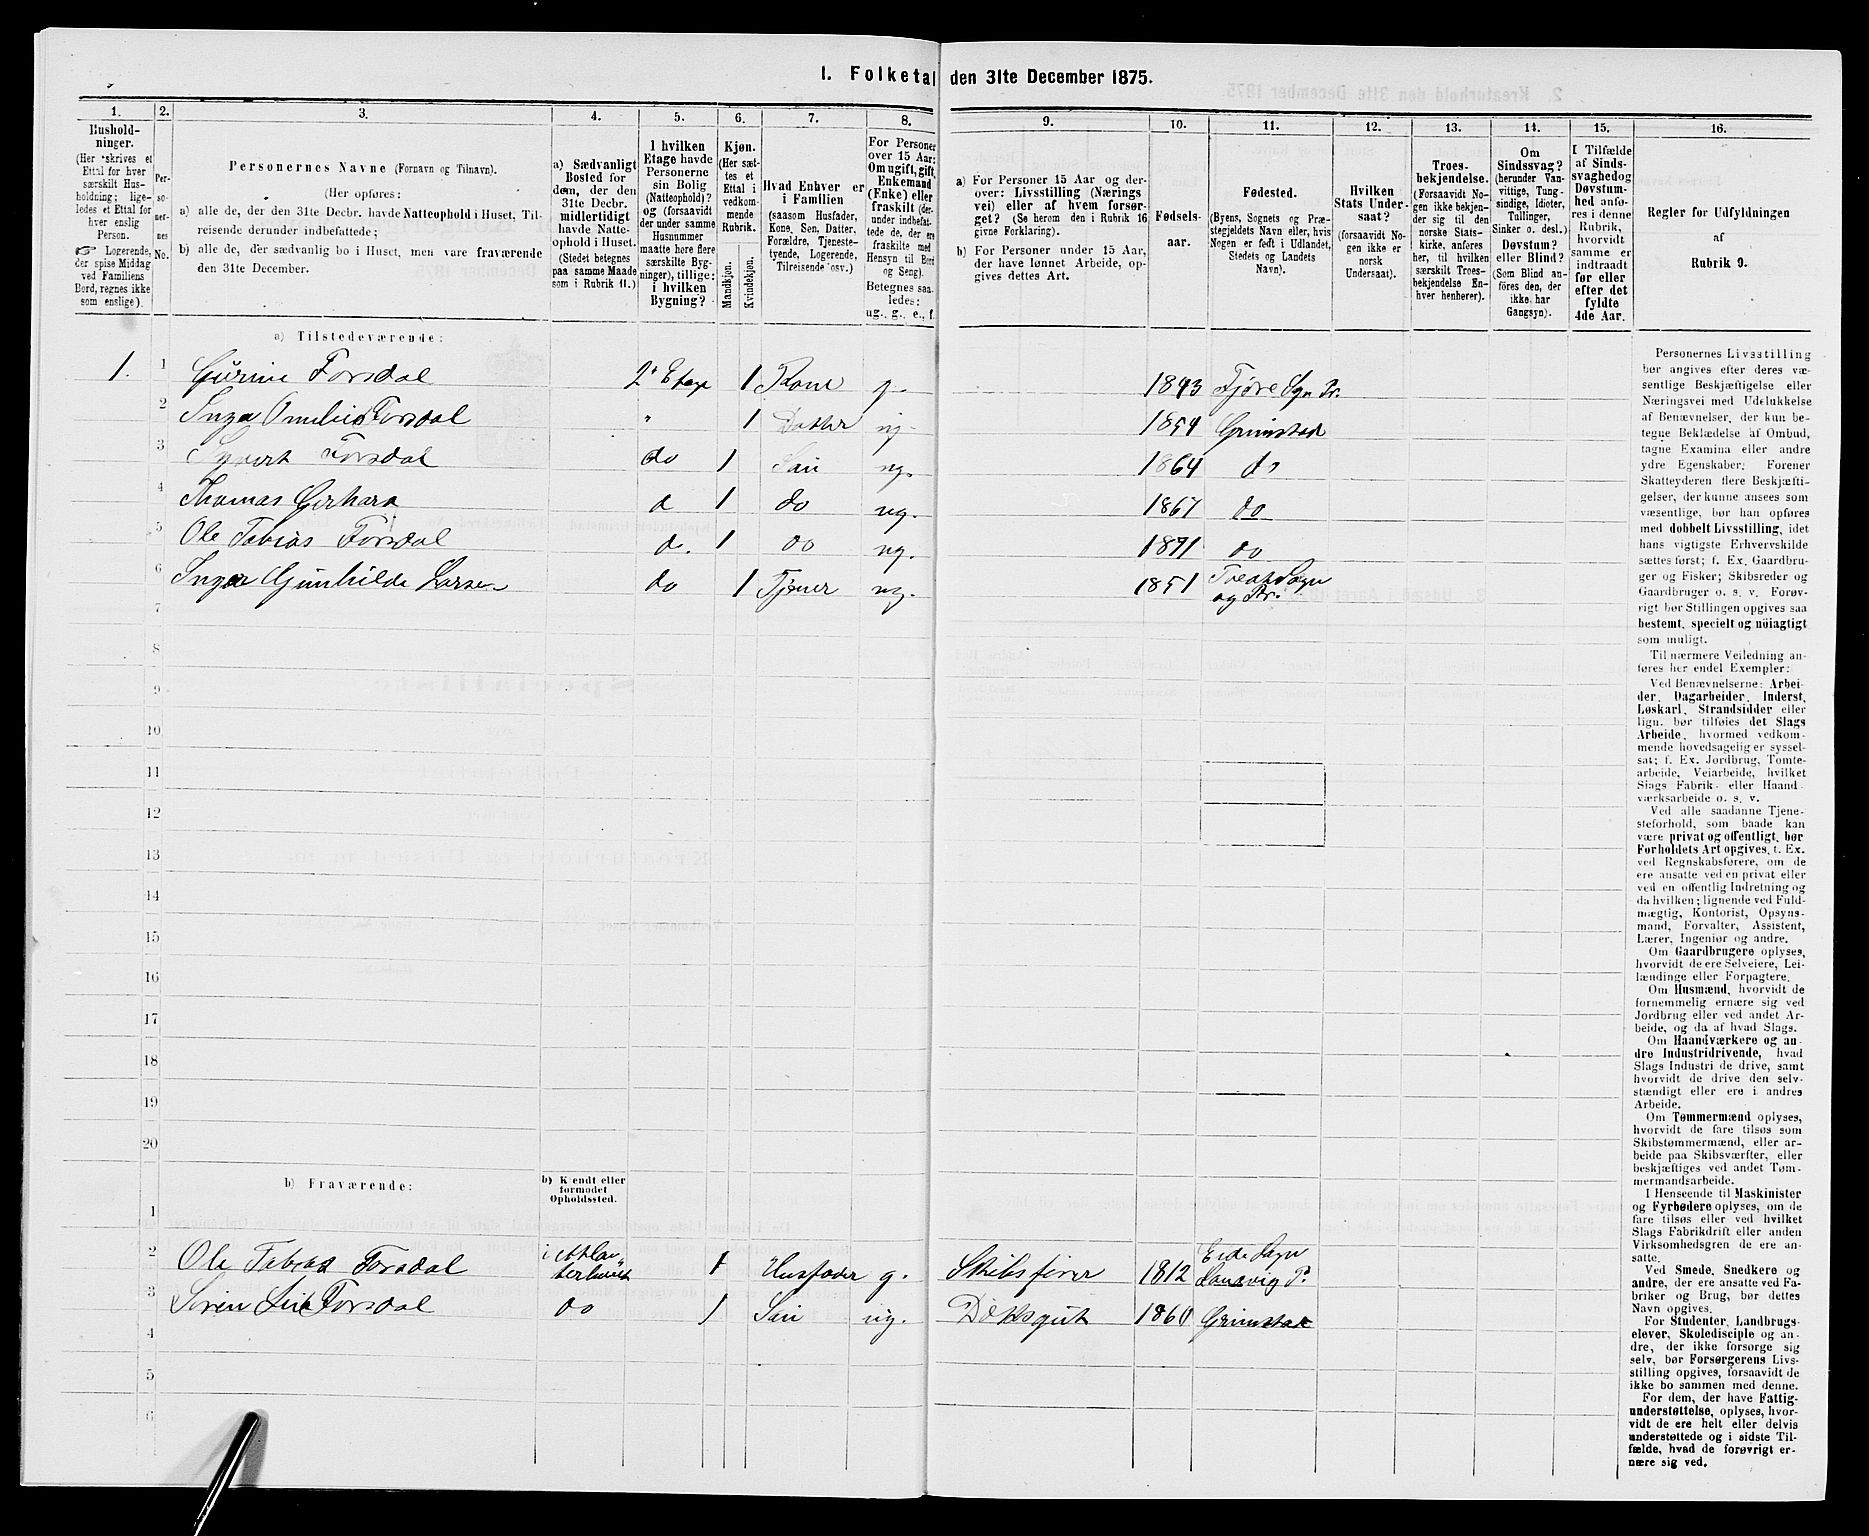 1. Folketal den 31te December 1875.
1. 2. 3. 4. 5. 6. 7. 8. 9. 10. 11. 12. 13. 14. 15. 16.
Hushold-
ninger.
(Her skrives et
Ettal for hver
særskilt Hus-
holdning; lige-
ledes et Ettal for
hver enslig
Person.
☞ Logerende,
der spise Middag
ved Familiens
Bord, regnes ikke
som enslige).
Per-
so-
ner-
nes
No.
Personernes Navne (Fornavn og Tilnavn).
(Her opføres:
a) alle de, der den 31te Decbr. havde Natteophold i Huset, Til-
reisende derunder indbefattede;
b) alle de, der sædvanlig bo i Huset, men vare fraværende
den 31te December.
a) Sædvanligt
Bosted for
dem, der den
31te Decbr.
midlertidigt
havde Natte-
ophold i Huset.
(Stedet betegnes
paa samme Maade
som i Rubrik 11.)
I hvilken
Etage havde
Personerne
sin Bolig
(Natteophold)?
og (forsaavidt
der under samme
Husnummer
maatte høre flere
særskilte Byg-
ninger), tillige:
i hvilken
Bygning?
Kjøn.
(Her sæt-
tes et
Ettal i
vedkom-
mende
Rubrik.
Mandkjøn.
Kvindekjøn.
Hvad Enhver er
i Familien
(saasom Husfader,
Kone, Søn, Datter,
Forældre, Tjeneste-
tyende, Logerende,
Tilreisende osv.)
For Personer
over 15 Aar:
Om ugift, gift,
Enkemand
(Enke) eller
fraskilt (der-
under indbefat-
tede de, der ere
fraskilte med
Hensyn til Bord
og Seng).
Betegnes saa-
ledes:
ug., g., e., f.
a) For Personer 15 Aar og der-
over: Livsstilling (Nærings-
vei) eller af hvem forsør-
get? (Se herom den i Rubrik 16
givne Forklaring).
b) For Personer under 15 Aar,
der have lønnet Arbeide, op-
gives dettes Art.
Fødsels-
aar.
Fødested.
(Byens, Sognets og Præ-
stegjeldets Navn eller, hvis
Nogen er født i Udlandet,
Stedets og Landets
Navn).
Hvilken
Stats Under-
saat?
(forsaavidt No-
gen ikke er
norsk
Undersaat).
Troes-
bekjendelse.
(Forsaavidt No-
gen ikke bekjen-
der sig til den
norske Stats-
kirke, anføres
her, til hvilken
særskilt Troes-
bekjendelse En-
hver henhører).
Om
Sindssvag?
(herunder Van-
vittige, Tung-
sindige, Idioter,
Tullinger,
Sinker o. desl.)
Døvstum?
eller Blind?
(Som Blind an-
føres den, der
ikke har
Gangsyn).
I Tilfælde
af Sinds-
svaghedog
Døvstum-
hed anfø-
res i denne
Rubrik,
hvorvidt
samme er
indtraadt
før eller
efter det
fyldte
4de Aar.
Regler for Udfyldningen
af
Rubrik 9.
a) Tilstedeværende:
1. 1 Gurine Forsdal 2' Etage 1 Kone g. 1843 Fjøre Sgn Pr.
2 Inga Forsdal " 1 Datter ug. 1854 Grimstad
3 Syvert Forsdal do 1 Søn ug. 1864 do
4 Thomas Gerhard d 1 do ug. 1867 do
5 Ole Tobias Forsdal d. 1 do ug. 1871 do
6 Inger Gunhilde Larsen do 1 Tjener ug. 1851 Sogn
og Pr.
7
8
9
10
11
12
13
14
15
16
17
18
19
20
b) Fraværende:
b) Kjendt eller
formodet
Opholdssted.
1
2 Ole Tobias Forsdal i Atlan-
terhavet 1 Husfader g. Skibsfører 1812 Eide Sogn
Landvig P.
3 Søren Forsdal do 1 Søn ug. Dæksgut 1860 Grimstad
4
5
6
Personernes Livsstilling
bør angives efter deres væ-
sentlige Beskjæftigelse eller
Næringsvei med Udelukkelse
af Benævnelser, der kun be-
tegne Beklædelse af Ombud,
tagne Examina eller andre
ydre Egenskaber. Forener
Skatteyderen flere Beskjæfti-
gelser, der kunne ansees som
væsentlige, bør han opføres
med dobbelt Livsstilling, idet
hans vigtigste Erhvervskilde
sættes først; f. Ex. Gaardbru-
ger og Fisker; Skibsreder og
Gaardbruger o. s. v. Forøv-
rigt bør Stillingen opgives saa
bestemt, specielt og nöiagtigt
som muligt.
Til nærmere Veiledning an-
føres her endel Exempler:
Ved Benævnelserne: Arbei-
der, Dagarbeider, Inderst,
Løskarl, Strandsidder eller
lign. bør tilføies det Slags
Arbeide, hvormed vedkom-
mende hovedsagelig er syssel-
sat; f. Ex. Jordbrug, Tomte-
arbeide, Veiarbeide, hvilket
Slags Fabrik- eller Haand-
værksarbeide o. s. v.
Ved alle saadanne Tjene-
steforhold, som baade kan
være privat og offentligt, bør
Forholdets Art opgives, f. Ex.
ved Regnskabsførere, om de
ere ansatte ved en privat eller
ved en offentlig Indretning og
da hvilken; lignende ved Fuld-
mægtig, Kontorist, Opsyns-
mand, Forvalter, Assistent,
Lærer, Ingeniør og andre.
Om Gaardbrugere oplyses,
hvorvidt de ere Selveiere, Lei-
lændinge eller Forpagtere.
Om Husmænd, hvorvidt de
fornemmelig ernære sig ved
Jordbrug eller ved andet Ar-
beide, og da af hvad Slags.
Om Haandværkere og an-
dre Industridrivende, hvad
Slags Industri de drive, samt
hvorvidt de drive den selv-
stændigt eller ere i andres
Arbeide.
Om Tømmermænd oplyses,
hvorvidt de fare tilsøs som
Skibstømmermænd, eller ar-
beide paa Skibsværfter, eller
beskjæftiges ved andet Tøm-
mermandsarbeide.
I Henseende til Maskinister
og Fyrbødere oplyses, om de
fare tilsøs eller ved hvilket
Slags Fabrikdrift eller anden
Virksomhedsgren de ere an-
satte.
Ved Smede, Snedkere og
andre, der ere ansatte ved Fa-
briker og Brug, bør dettes
Navn opgives.
For Studenter, Landbrugs-
elever, Skoledisciple og an-
dre, der ikke forsørge sig
selv, bør Forsørgerens Livs-
stilling opgives, forsaavidt de
ikke bo sammen med denne.
For dem, der have Fattig-
understøttelse, oplyses, hvor-
vidt de ere helt eller delvis
understøttede og i sidste Til-
fælde, hvad de forøvrigt er-
nære sig ved.